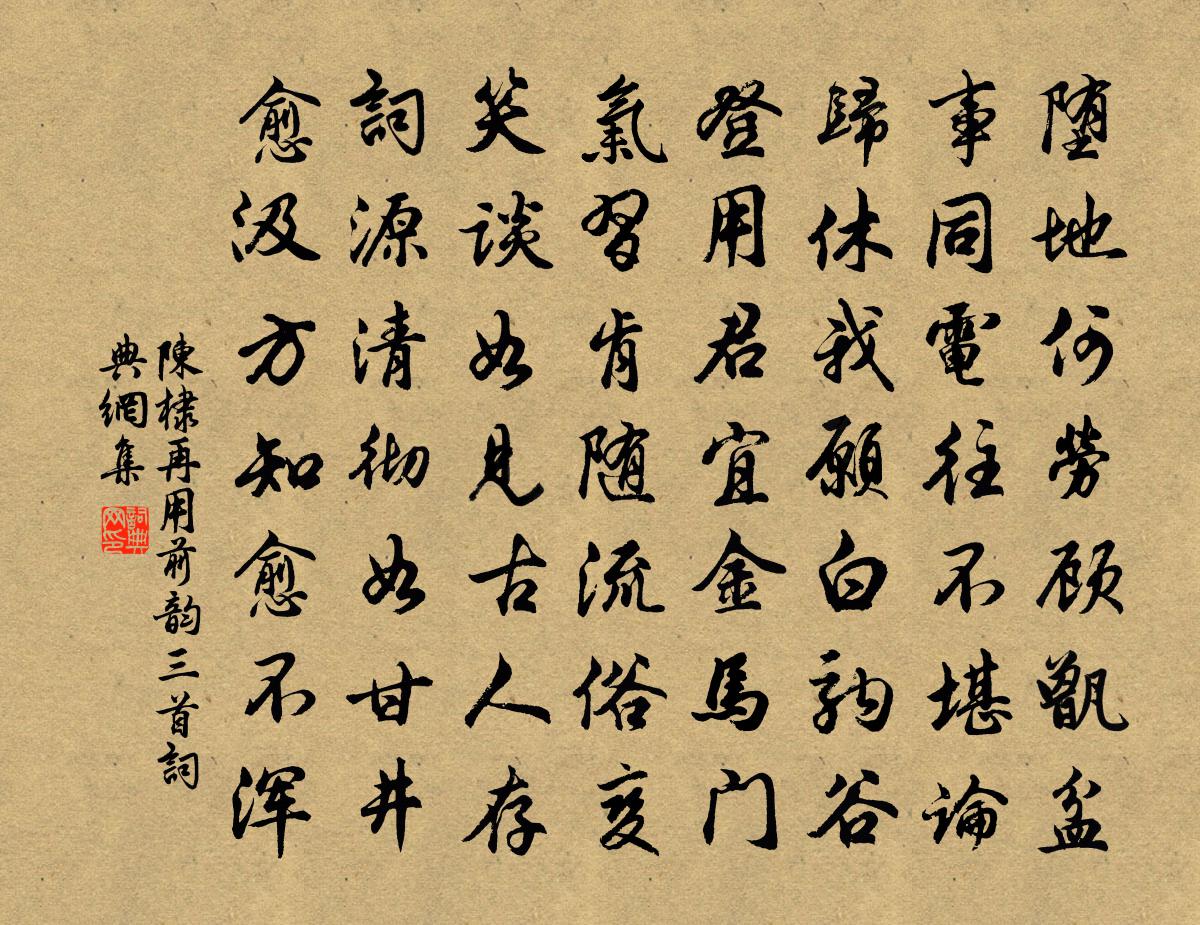 堕地何勞顾甑盆
事同電往不堪論
歸休我願白駒谷
登用君宜金馬门
氣習肯随流俗变
笑談如見古人存
詞源清彻如甘井
愈汲方知愈不浑
陳棣再用前韵三首詞
典網集
詞典
网印